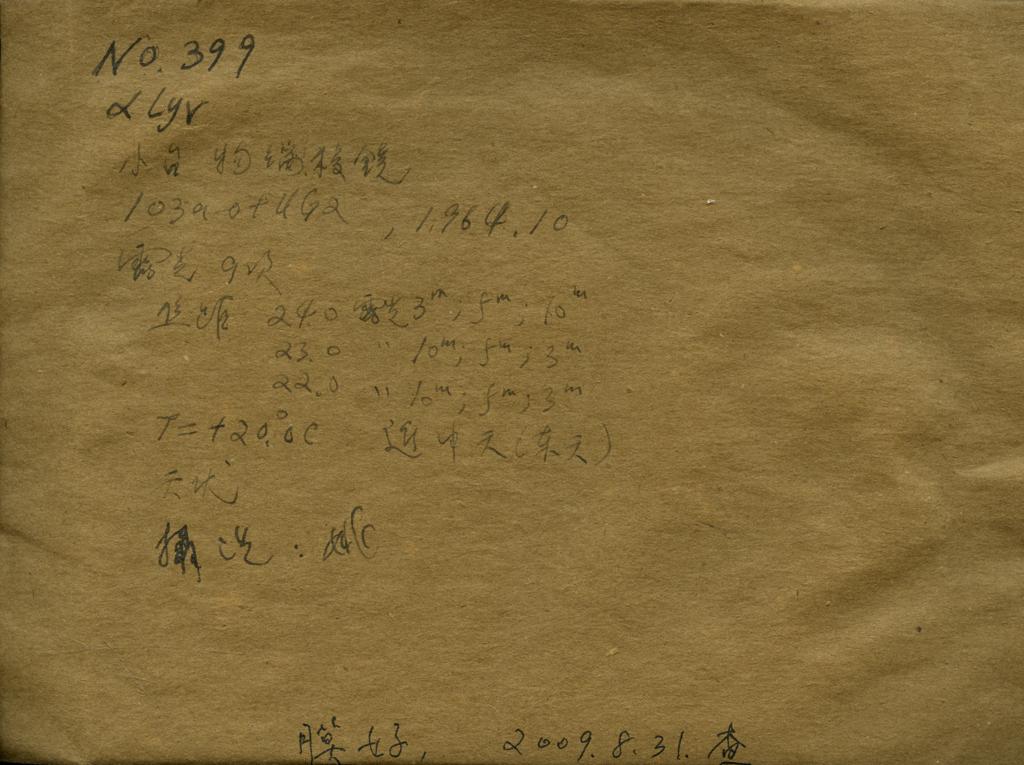 No. 399
α Lyr
小台 物端棱镜
103a0+UG2 , 1964.10
露光 9次
焦距 24.0 露光 3ᵐ; 5ᵐ; 10ᵐ
23.0 〃 10ᵐ; 5ᵐ; 3ᵐ
22.0 〃 10ᵐ; 5ᵐ; 3ᵐ
T=+20.°0C 近中天(东天)
天忧
攝洗: 姚
膜好, 2009.8.31.查